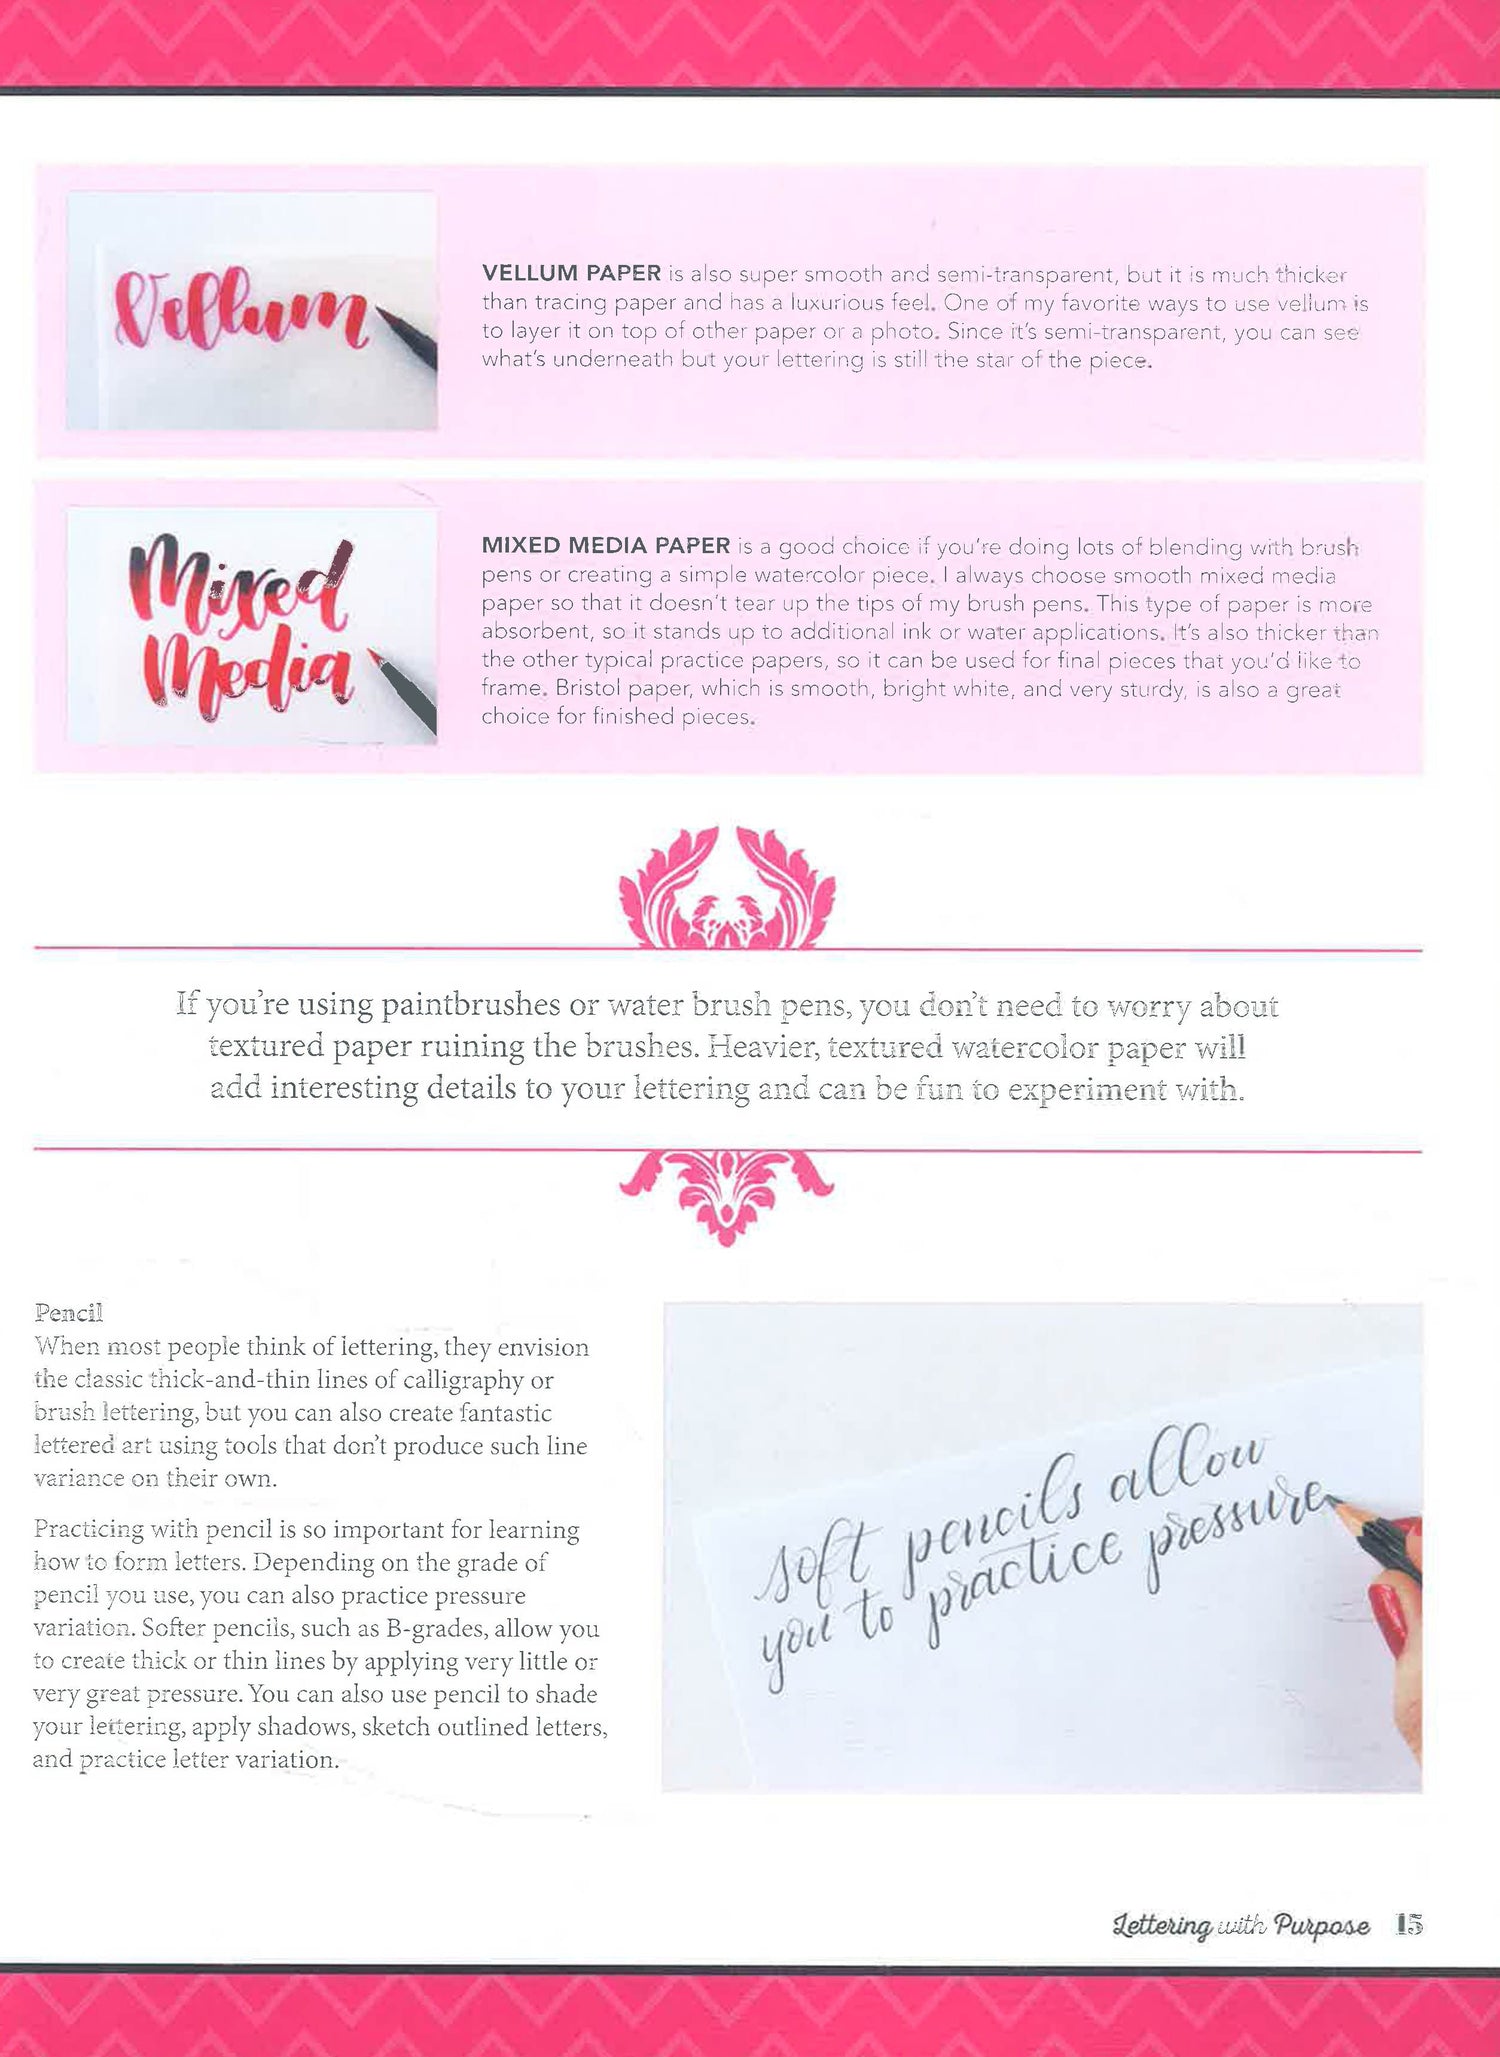 Vellum
VELLUM PAPER is also super smooth and semi-transparent, but it is much thicker
than tracing paper and has a luxurious feel. One of my favorite ways to use vellum is
to layer it on top of other paper or a photo. Since it's semi-transparent, you can see
what's underneath but your lettering is still the star of the piece.
Mixed
Media
MIXED MEDIA PAPER is a good choice if you're doing lots of blending with brush
pens or creating a simple watercolor piece. I always choose smooth mixed media
paper so that it doesn't tear up the tips of my brush pens. This type of paper is more
absorbent, so it stands up to additional ink or water applications. It's also thicker than
the other typical practice papers, so it can be used for final pieces that you'd like to
frame. Bristol paper, which is smooth, bright white, and very sturdy, is also a great
choice for finished pieces.
If you're using paintbrushes or water brush pens, you don't need to worry about
textured paper ruining the brushes. Heavier, textured watercolor paper will
add interesting details to your lettering and can be fun to experiment with.
Pencil
When most people think of lettering, they envision
the classic thick-and-thin lines of calligraphy or
brush lettering, but you can also create fantastic
lettered art using tools that don't produce such line
variance on their own.
Practicing with pencil is so important for learning
how to form letters. Depending on the grade of
pencil you use, you can also practice pressure
variation. Softer pencils, such as B-grades, allow you
to create thick or thin lines by applying very little or
very great pressure. You can also use pencil to shade
your lettering, apply shadows, sketch outlined letters,
and practice letter variation.
soft pencils allow
you to practice pressure
Lettering with Purpose 15